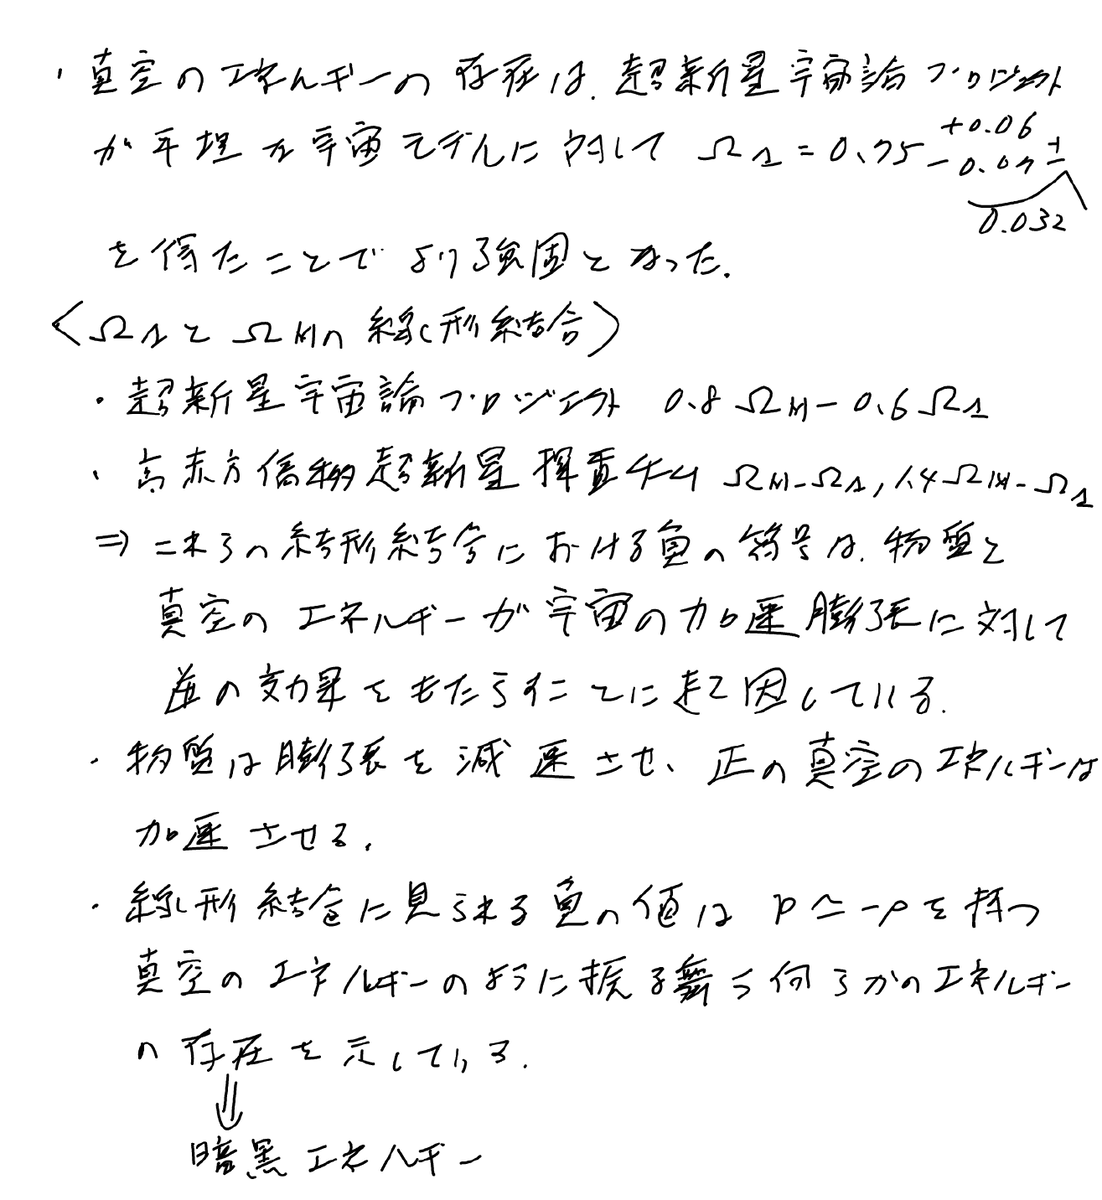 ・真空のエネルギーの存在は、超新星宇宙論プロジェクト
が平坦な宇宙モデルに対して ΩΛ = 0.75 +0.06 −0.07 ± 0.032
を得たことでより強固となった。
〈ΩΛとΩMの線形結合〉
・超新星宇宙論プロジェクト 0.8ΩM − 0.6ΩΛ
・高赤方偏移超新星捜査チーム ΩM − ΩΛ, 1.4ΩM − ΩΛ
⇒ これらの線形結合における負の符号は、物質と
真空のエネルギーが宇宙の加速膨張に対して
逆の効果をもたらすことに起因している。
・物質は膨張を減速させ、正の真空のエネルギーは
加速させる。
・線形結合に見られる負の値は p ≃ −ρ を持つ
真空のエネルギーのように振る舞う何らかのエネルギー
の存在を示している。
⇓
暗黒エネルギー